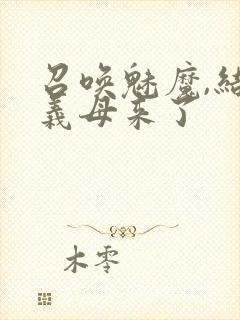 召唤魅魔,結
義母来了
木零